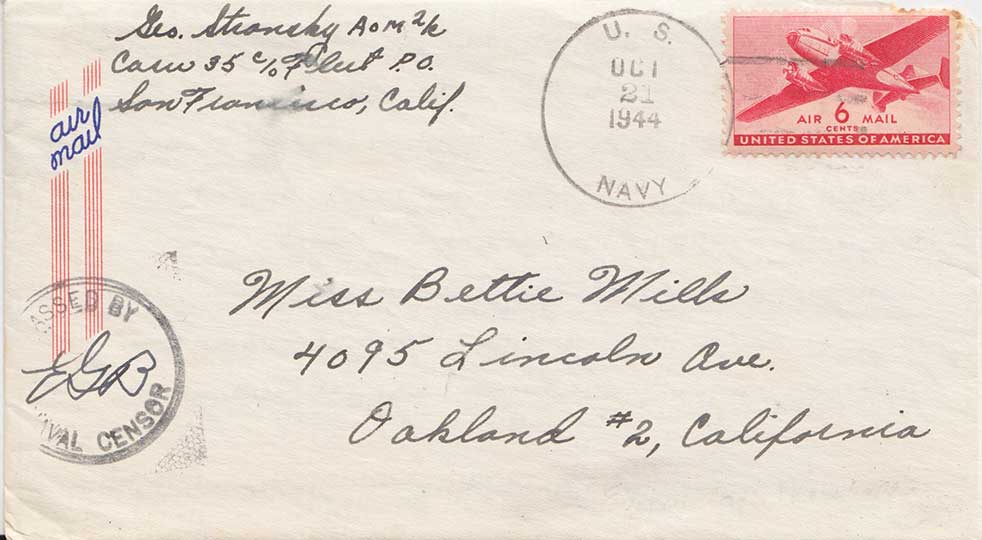 Geo. Stransky AOM 2/c
Casu 35 c/o Fleet P.O.
San Francisco, Calif.
air
mail
U. S.
OCT
21
1944
NAVY
AIR 6 MAIL
CENTS
UNITED STATES OF AMERICA
Miss Bettie Mills
4095 Lincoln Ave.
Oakland #2, California
ASSED BY
EGB
VAL CENSOR